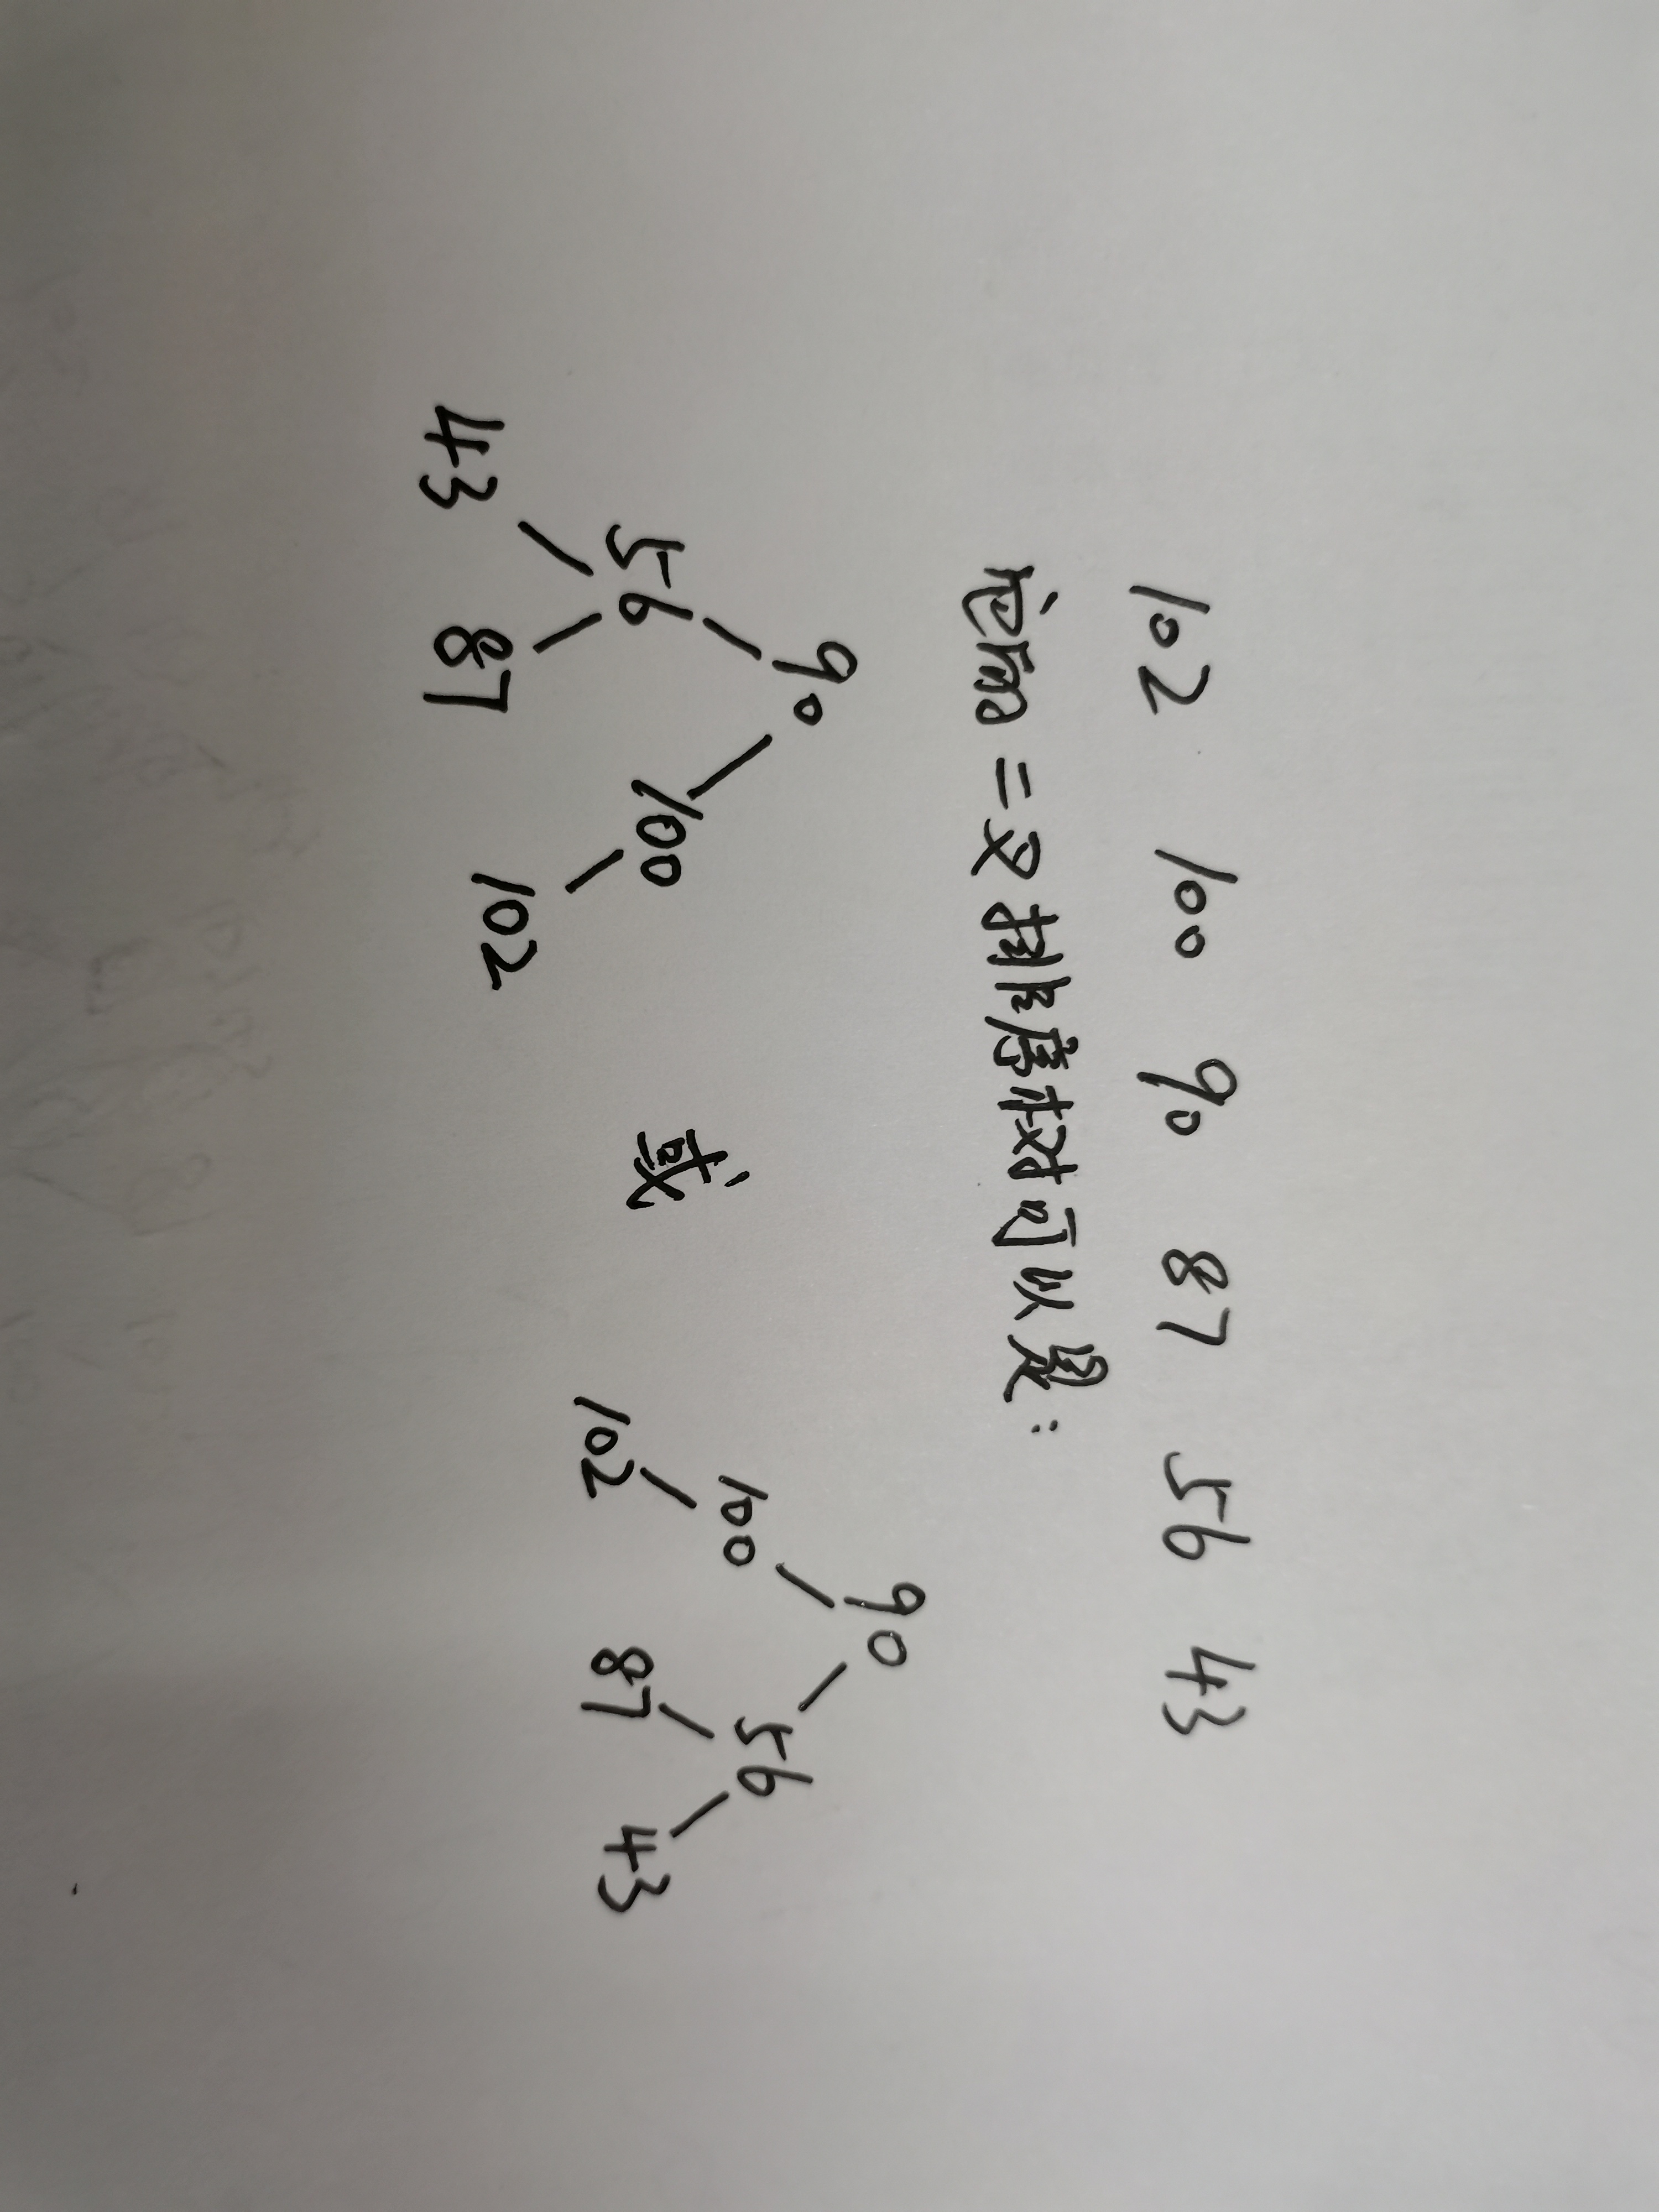 102 100 90 87 56 43
二叉排序树可以是:
90
56 100
43 87 102
或
90
100 56
102 87 43